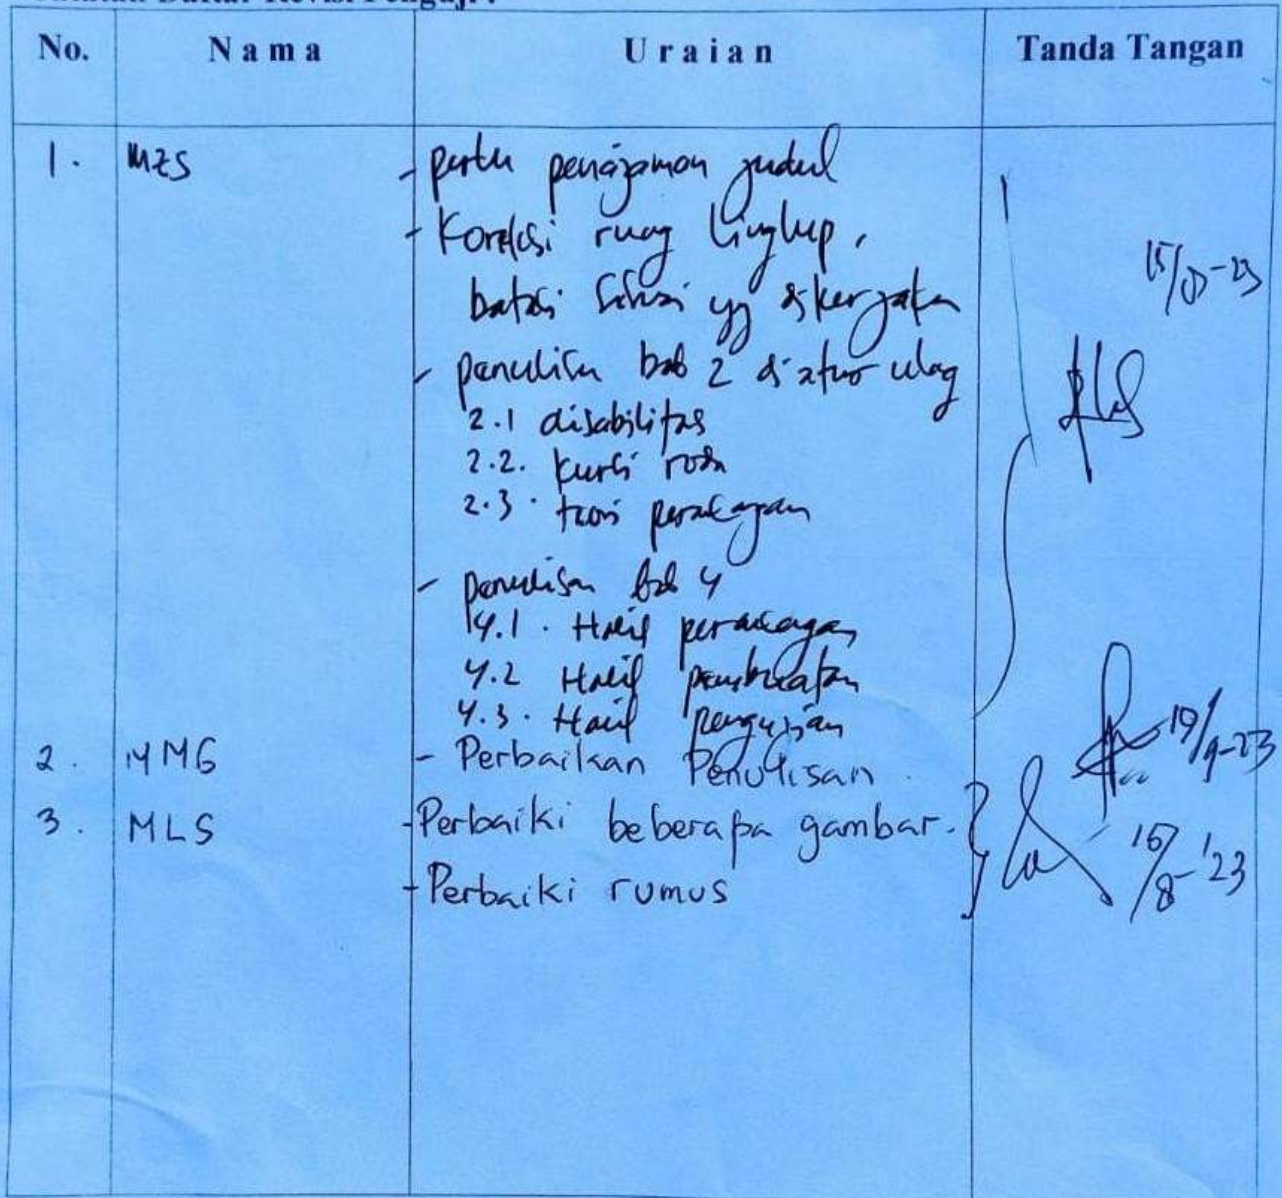 Daftar Revisi Penguji :
No. Nama Uraian Tanda Tangan
1. MZS - perlu penajaman judul
- Koreksi ruag lingkup,
batasi yg dikerjakan
15/ -23
- penulisan bab 2 diatur ulag
2.1 disabilitas
2.2. kursi roda
2.3. teori peracagan
- penulisan bab 4
4.1. Hasil peracagan
4.2 Hasil pembuatan
4.3. Hasil pengujian
2. MMG - Perbaikan Penulisan. 19/9-23
3. MLS - Perbaiki beberapa gambar.
- Perbaiki rumus /8-'23